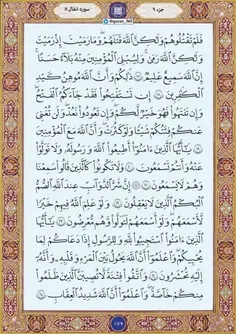 جزء ۹
سوره انفال ۸
فَلَمْ تَقْتُلُوهُمْ وَلَٰكِنَّ ٱللَّهَ قَتَلَهُمْ ۚ وَمَا رَمَيْتَ إِذْ رَمَيْتَ
وَلَٰكِنَّ ٱللَّهَ رَمَىٰ ۚ وَلِيُبْلِىَ ٱلْمُؤْمِنِينَ مِنْهُ بَلَآءً حَسَنًا ۚ
إِنَّ ٱللَّهَ سَمِيعٌ عَلِيمٌ ﴿١٧﴾ ذَٰلِكُمْ وَأَنَّ ٱللَّهَ مُوهِنُ كَيْدِ
ٱلْكَٰفِرِينَ ﴿١٨﴾ إِن تَسْتَفْتِحُوا۟ فَقَدْ جَآءَكُمُ ٱلْفَتْحُ ۖ
وَإِن تَنتَهُوا۟ فَهُوَ خَيْرٌ لَّكُمْ ۖ وَإِن تَعُودُوا۟ نَعُدْ وَلَن تُغْنِىَ
عَنكُمْ فِئَتُكُمْ شَيْـًٔا وَلَوْ كَثُرَتْ وَأَنَّ ٱللَّهَ مَعَ ٱلْمُؤْمِنِينَ
﴿١٩﴾ يَٰٓأَيُّهَا ٱلَّذِينَ ءَامَنُوٓا۟ أَطِيعُوا۟ ٱللَّهَ وَرَسُولَهُۥ وَلَا تَوَلَّوْا۟
عَنْهُ وَأَنتُمْ تَسْمَعُونَ ﴿٢٠﴾ وَلَا تَكُونُوا۟ كَٱلَّذِينَ قَالُوا۟ سَمِعْنَا
وَهُمْ لَا يَسْمَعُونَ ﴿٢١﴾ إِنَّ شَرَّ ٱلدَّوَآبِّ عِندَ ٱللَّهِ ٱلصُّمُّ
ٱلْبُكْمُ ٱلَّذِينَ لَا يَعْقِلُونَ ﴿٢٢﴾ وَلَوْ عَلِمَ ٱللَّهُ فِيهِمْ خَيْرًا
لَّأَسْمَعَهُمْ ۖ وَلَوْ أَسْمَعَهُمْ لَتَوَلَّوا۟ وَّهُم مُّعْرِضُونَ ﴿٢٣﴾ يَٰٓأَيُّهَا
ٱلَّذِينَ ءَامَنُوا۟ ٱسْتَجِيبُوا۟ لِلَّهِ وَلِلرَّسُولِ إِذَا دَعَاكُمْ لِمَا
يُحْيِيكُمْ ۖ وَٱعْلَمُوٓا۟ أَنَّ ٱللَّهَ يَحُولُ بَيْنَ ٱلْمَرْءِ وَقَلْبِهِۦ وَأَنَّهُۥٓ
إِلَيْهِ تُحْشَرُونَ ﴿٢٤﴾ وَٱتَّقُوا۟ فِتْنَةً لَّا تُصِيبَنَّ ٱلَّذِينَ ظَلَمُوا۟
مِنكُمْ خَآصَّةً ۖ وَٱعْلَمُوٓا۟ أَنَّ ٱللَّهَ شَدِيدُ ٱلْعِقَابِ ﴿٢٥﴾
١٧٩